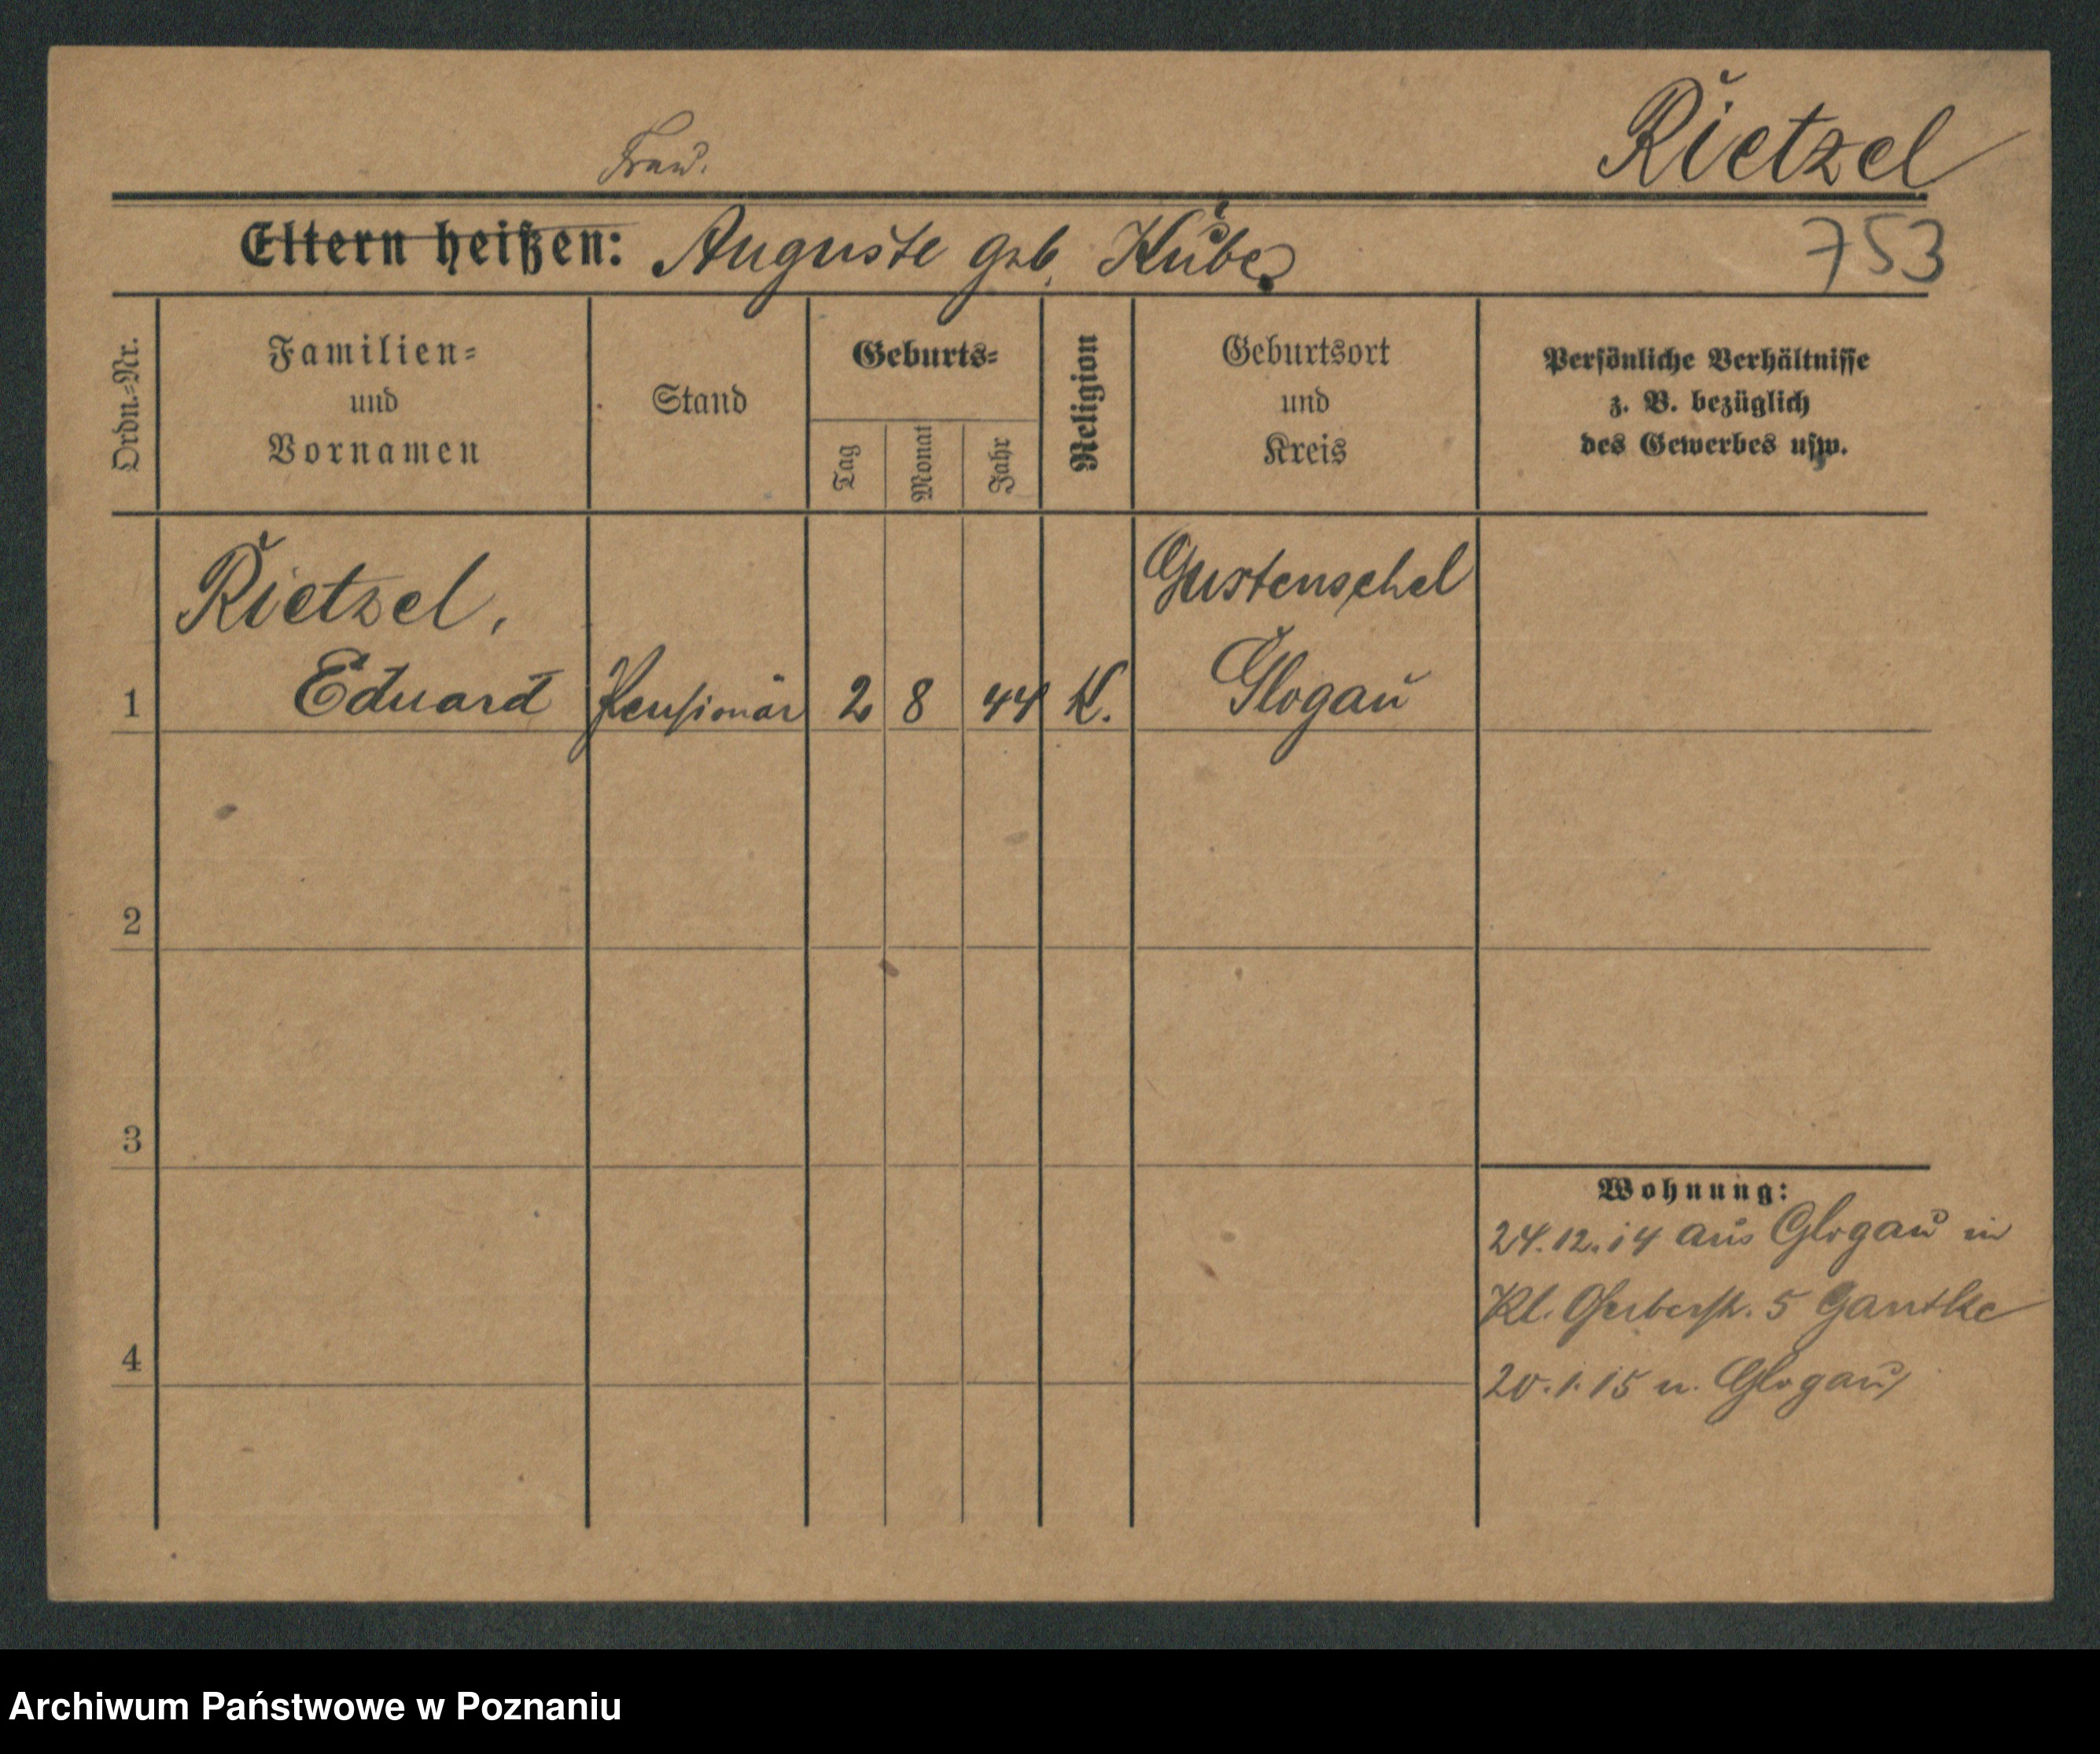 Rietzel
Frau.
Eltern heißen: Auguste geb. Kube
753
Ordn.-Nr.
Familien-
und
Vornamen
Stand
Geburts-
Tag
Monat
Jahr
Religion
Geburtsort
und
Kreis
Persönliche Verhältnisse
z. B. bezüglich
des Gewerbes usw.
Rietzel,
Gustenschel
1 Eduard Pensionär 2 8 44 K. Glogau
2
3
4
Wohnung:
24.12.14 aus Glogau in
Kl. Gerberstr. 5 Gantke
20.1.15 n. Glogau
Archiwum Państwowe w Poznaniu